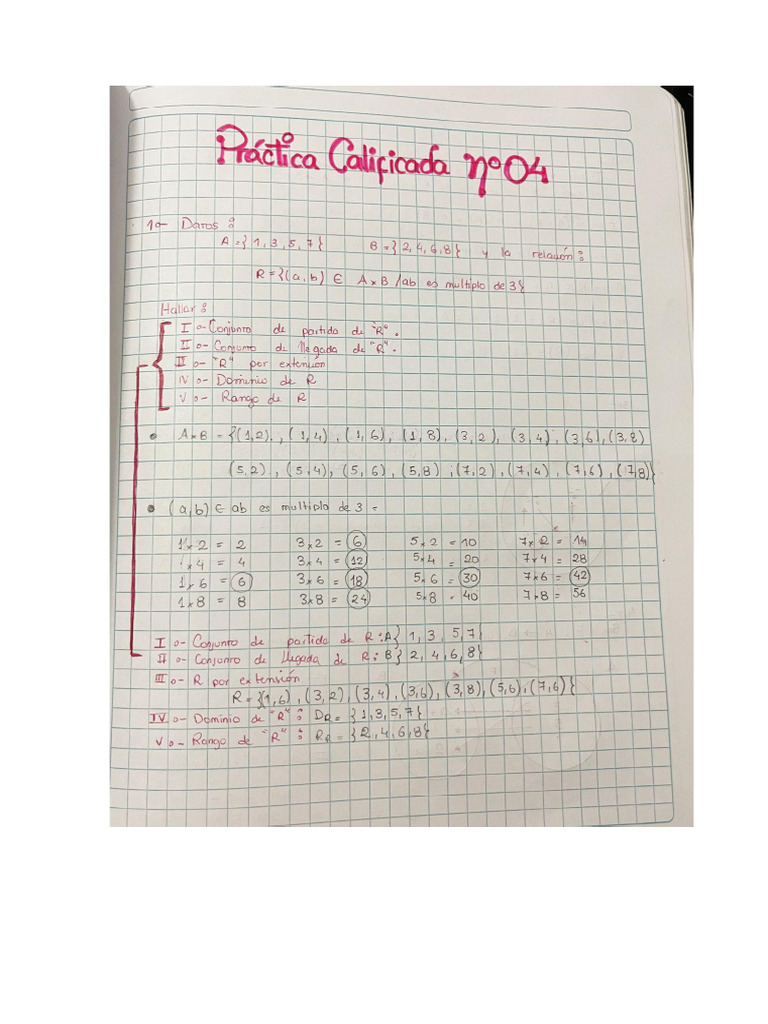 Práctica Calificada nº 04
1o- Datos:
A={1,3,5,7} B={2,4,6,8} y la relación:
R={(a,b) ∈ A×B /ab es multiplo de 3}
Hallar:
I o- Conjunto de partido de "R".
II o- Conjunto de llegada de "R".
III o- "R" por extensión
IV o- Dominio de R
V o- Rango de R
• A×B = {(1,2), (1,4), (1,6), (1,8), (3,2), (3,4), (3,6), (3,8)
(5,2), (5,4), (5,6), (5,8), (7,2), (7,4), (7,6), (7,8)}
• (a,b) ∈ ab es multiplo de 3 =
1×2 = 2 3×2 = 6 5×2 = 10 7×2 = 14
1×4 = 4 3×4 = 12 5×4 = 20 7×4 = 28
1×6 = 6 3×6 = 18 5×6 = 30 7×6 = 42
1×8 = 8 3×8 = 24 5×8 = 40 7×8 = 56
I o- Conjunto de partida de R: A{1,3,5,7}
II o- Conjunto de llegada de R: B{2,4,6,8}
III o- R por extensión
R={(1,6), (3,2), (3,4), (3,6), (3,8), (5,6), (7,6)}
IV o- Dominio de "R": DR={1,3,5,7}
V o- Rango de "R": RR={2,4,6,8}